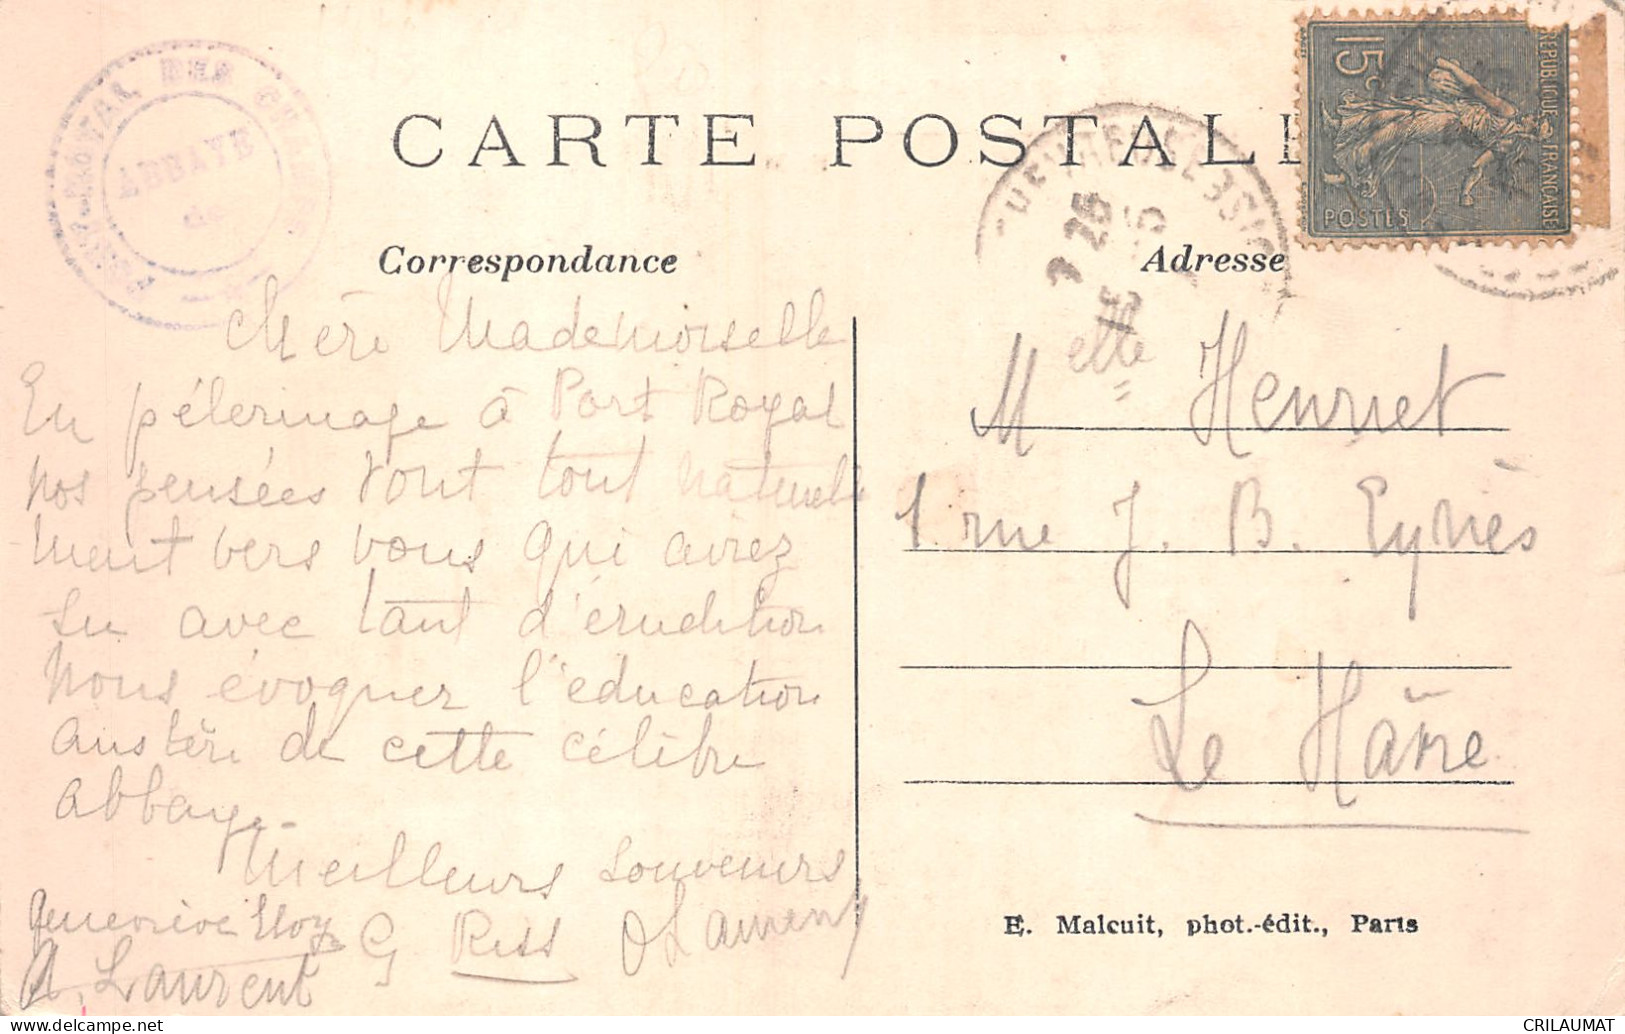 ABBAYE
de
PORT-ROYAL DES CHAMPS
CARTE POSTALE
RÉPUBLIQUE FRANÇAISE
15c
POSTES
7 25
Correspondance
Adresse
Chère Mademoiselle
En pélerinage à Port Royal
nos pensées vont tout naturelle
ment vers vous qui aviez
su avec tant d'érudition
nous évoquer l'éducation
austère de cette célèbre
abbaye.
Meilleurs souvenirs
Geneviève Eloy G Riss O Laurent
A. Laurent
Melle Henriet
1 rue J. B. Eyriès
Le Hâvre
E. Malcuit, phot.-édit., Paris
CRILAUMAT